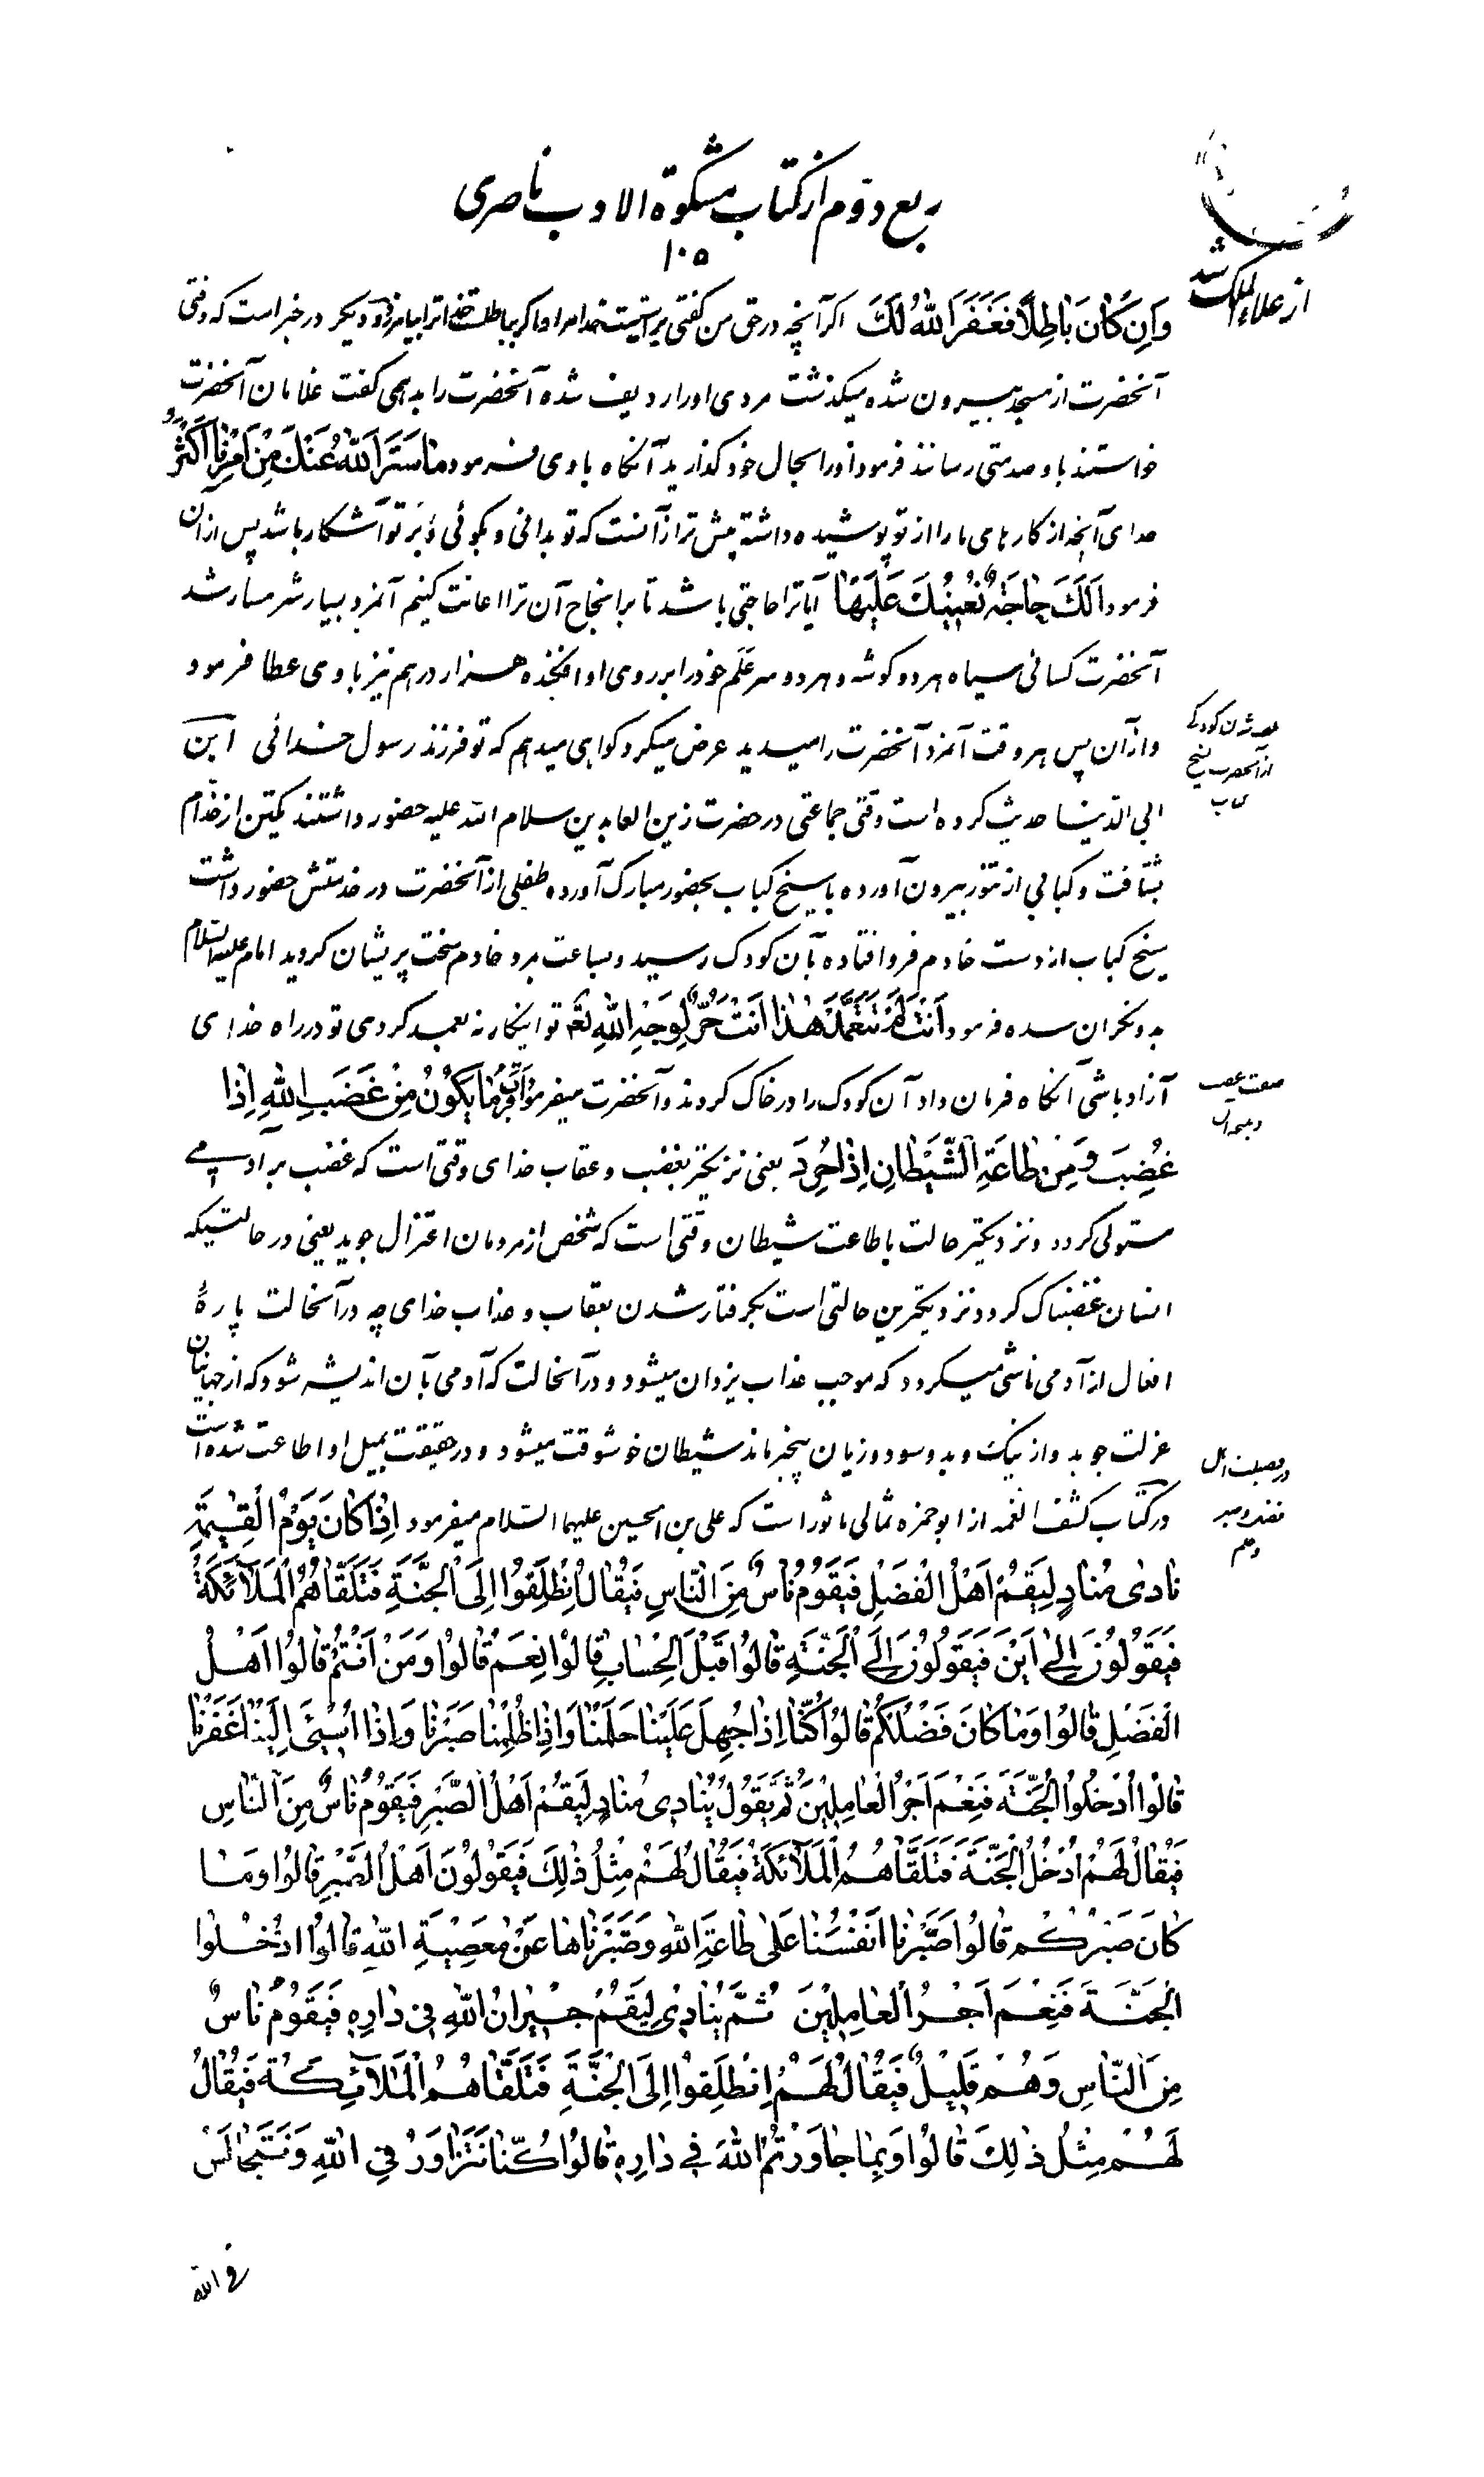 ربع دوم از کتاب مشکوة الادب ناصری
۱۰۵
وَاِن كانَ باطِلاً فَغَفَرَ اللهُ لَكَ اکر آنچه در حق من کفتی براستیست خدا مرا و اکر بباطلست خدا ترا بیامرزد و دیکر در خبر است که وقتی
آنحضرت از مسجد بیرون شده میکذشت مردی او را ردیف شده آنحضرت را بد همی کفت غلامان آنحضرت
خواستند باو صدمتی رسانند فرمود او را بحال خود کذارید آنکاه باوی فرمود ما سَتَرَ اللهُ عَنْكَ مِنْ اَمْرِنا اَكْثَرُ
خدای آنچه از کارهای ما را از تو پوشیده داشته بیش تر از آنست که تو بدانی و بکوئی و بر تو آشکار باشد پس از آن
فرمود اَلَكَ حاجَةٌ نُعينُكَ عَلَيْها آیا ترا حاجتی باشد تا بر انجاح آن ترا اعانت کنیم آنمرد بسیار شرمسار شد
آنحضرت کسائی سیاه هر دو کوشه و هر دو سر علم خود را بر روی او افکنده هزار درهم نیز باوی عطا فرمود
و از آن پس هر وقت آنمرد آنحضرت را میدید عرض میکرد کواهی میدهم که تو فرزند رسول خدائی ابن
ابی الدنیا حدیث کرده است وقتی جماعتی در حضرت زین العابدین سلام الله علیه حضور داشتند یکتن از خدّام
بشتافت و کبابی از تنور بیرون آورده با سیخ کباب بحضور مبارک آورده طفلی از آنحضرت در خدمتش حضور داشت
سیخ کباب از دست خادم فرو افتاده بآن کودک رسید و بساعت بمرد خادم سخت پریشان کردید امام علیه السلام
بدو نکران شده فرمود اَنْتَ لَمْ تَتَعَمَّدْ هذا اَنْتَ حُرٌّ لِوَجْهِ اللهِ تو اینکار نه بعمد کردی تو در راه خدای
آزاد باشی آنکاه فرمان داد آن کودک را در خاک کردند و آنحضرت میفرمود اَقْرَبُ ما يَكُونُ مِنْ غَضَبِ اللهِ اِذا
غَضِبَ وَ مِنْ طاعَةِ الشَّيْطانِ اِذا حُرِدَ یعنی نزدیکتر بغضب و عقاب خدای وقتی است که غضب بر آدمی
مستولی کردد و نزدیکتر حالت باطاعت شیطان وقتی است که شخص از مردمان اعتزال جوید یعنی در حالتیکه
انسان غضبناک کردد نزدیکترین حالتی است بکرفتار شدن بعقاب و عذاب خدای چه در آنحالت پارهٔ
افعال از آدمی ناشی میکردد که موجب عذاب یزدان میشود و در آنحالت که آدمی بآن اندیشه شود که از جهانیان
عزلت جوید و از نیک و بد و سود و زیان بیخبر ماند شیطان خوشوقت میشود و در حقیقت بمیل او اطاعت شده است
در کتاب کشف الغمه از ابوحمزه ثمالی ماثور است که علی بن الحسین علیهما السلام میفرمود اِذا كانَ يَوْمُ الْقِيمَةِ
نادى مُنادٍ لِيَقُمْ اَهْلُ الْفَضْلِ فَيَقُومُ ناسٌ مِنَ النّاسِ فَيُقالُ انْطَلِقُوا اِلَى الْجَنَّةِ فَتَلَقّاهُمُ الْمَلآئِكَةُ
فَيَقُولُونَ اِلى اَيْنَ فَيَقُولُونَ اِلَى الْجَنَّةِ قالُوا قَبْلَ الْحِسابِ قالُوا نَعَمْ قالُوا وَ مَنْ اَنْتُمْ قالُوا اَهْلُ
الْفَضْلِ قالُوا وَ ما كانَ فَضْلُكُمْ قالُوا كُنّا اِذا جُهِلَ عَلَيْنا حَلُمْنا وَ اِذا ظُلِمْنا صَبَرْنا وَ اِذا اُسيئَ اِلَيْنا غَفَرْنا
قالُوا اُدْخُلُوا الْجَنَّةَ فَنِعْمَ اَجْرُ الْعامِلينَ ثُمَّ يَقُولُ يُنادي مُنادٍ لِيَقُمْ اَهْلُ الصَّبْرِ فَيَقُومُ ناسٌ مِنَ النّاسِ
فَيُقالُ لَهُمْ اُدْخُلُ الْجَنَّةَ فَتَلَقّاهُمُ الْمَلآئِكَةُ فَيُقالُ لَهُمْ مِثْلُ ذلِكَ فَيَقُولُونَ اَهْلُ الصَّبْرِ قالُوا وَ ما
كانَ صَبْرُكُمْ قالُوا صَبَّرْنا اَنْفُسَنا عَلى طاعَةِ اللهِ وَ صَبَّرْناها عَنْ مَعْصِيَةِ اللهِ قالُوا ادْخُلُوا
الْجَنَّةَ فَنِعْمَ اَجْرُ الْعامِلينَ ثُمَّ يُنادي لِيَقُمْ جيرانُ اللهِ في دارِهِ فَيَقُومُ ناسٌ
مِنَ النّاسِ وَ هُمْ قَليلٌ فَيُقالُ لَهُمْ اِنْطَلِقُوا اِلَى الْجَنَّةِ فَتَلَقّاهُمُ الْمَلآئِكَةُ فَيُقالُ
لَهُمْ مِثْلُ ذلِكَ قالُوا وَ بِما جاوَرْتُمُ اللهَ في دارِهِ قالُوا كُنّا نَتَزاوَرُ فِي اللهِ وَ نَتَجالَسُ
فی الله